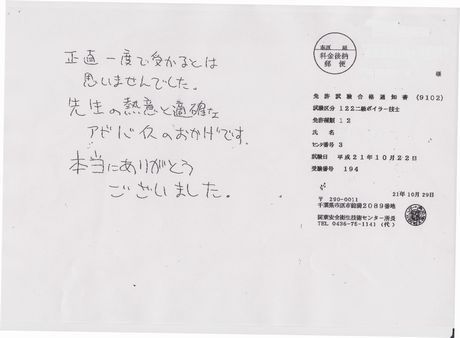 正直一度で受かるとは
思いませんでした。
先生の熱意と適確な
アドバイスのおかげです。
本当にありがとう
ございました。
市原 局
料金後納
郵便
様
免許試験合格通知書 (9102)
試験区分 122二級ボイラー技士
免許種類 12
氏 名
センタ番号 3
試験日 平成21年10月22日
受験番号 194
21年10月29日
〒 290-0011
千葉県市原市能満2089番地
関東安全衛生技術センター所長
TEL 0436-75-1141 (代)